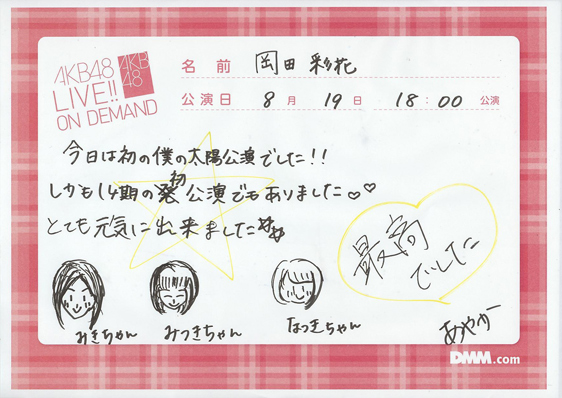 AKB48
LIVE!!
ON DEMAND
AKB
48
名前 岡田彩花
公演日 8月19日 18:00公演
今日は初の僕の太陽公演でした!!
しかも14期の初公演でもありました♡♡
とても元気に出来ました
最高
でした
みきちゃん
みつきちゃん
なつきちゃん
あやかー
DMM.com